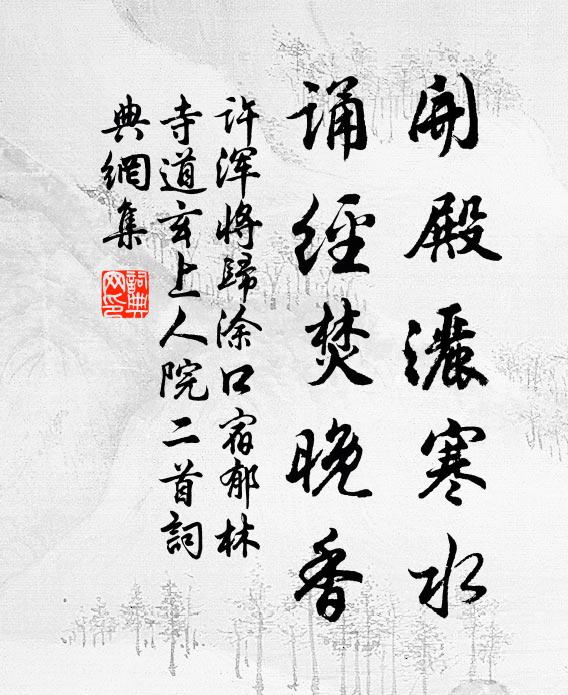 開殿灑寒水
誦經焚晚香
许浑将歸涂口宿郁林
寺道玄上人院二首詞
典網集
詞典
网印